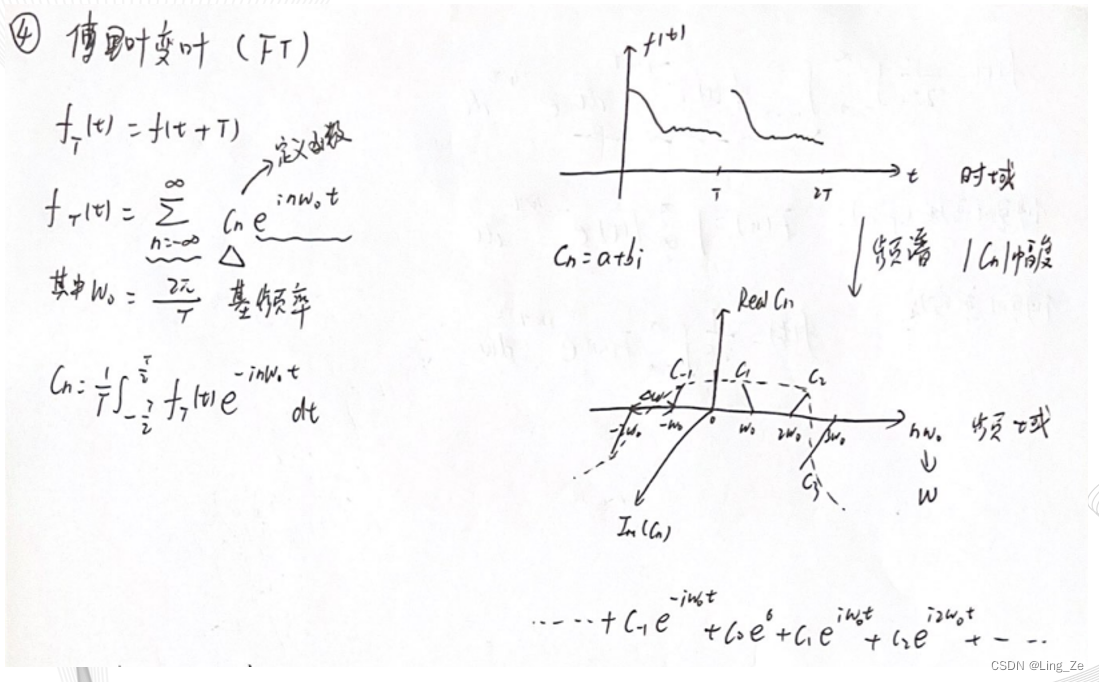 ④ 傅里叶变叶 (FT)
f_T(t) = f(t + T)
定义函数
f_T(t) = \sum_{n=-∞}^{∞} C_n e^{inw_0t}
△
其中 W_0 = \frac{2π}{T} 基频率
C_n = \frac{1}{T} ∫_{-\frac{T}{2}}^{\frac{T}{2}} f_T(t) e^{-inw_0t} dt
f(t)
T 2T t 时域
C_n = a+bi
频谱 |C_n|幅度
Real C_n
C_{-1} C_1 C_2
△w
-2w_0 -w_0 0 w_0 2w_0 3w_0 nw_0 频域
C_3
W
Im(C_n)
······ + C_{-1} e^{-iw_0t} + C_0 e^0 + C_1 e^{iw_0t} + C_2 e^{i2w_0t} + - ··
CSDN @Ling_Ze